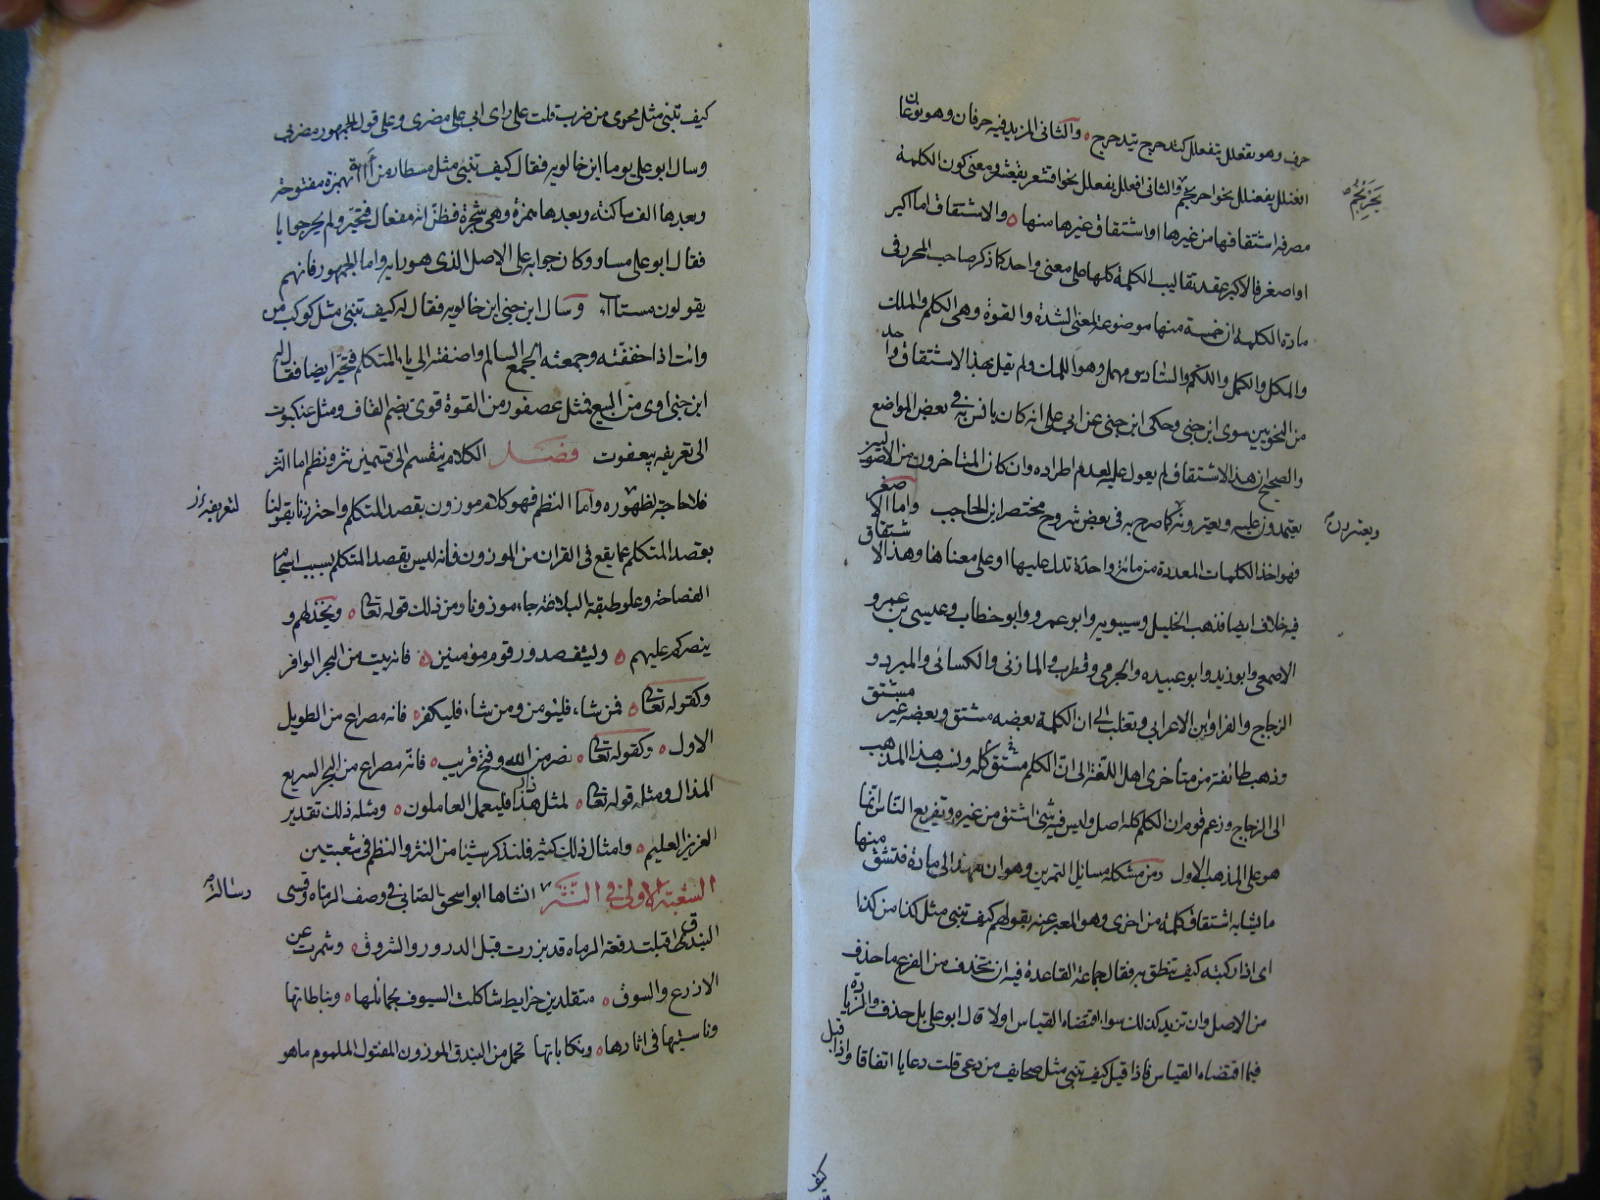 حرف وهو تفعلل يتفعلل كتدحرج يتدحرج والثاني المزيد فيه حرفان وهو نوعان
افعنلل يفعنلل نحو احرنجم والثاني افعلل يفعلل نحو اقشعر يقشعر ومعنى كون الكلمة
يحرنجم
مصرفه اشتقاقها من غيرها او اشتقاق غيرها منها والاشتقاق اما اكبر
او اصغر فالاكبر عقد تقاليب الكلمة كلها على معنى واحد كما ذكر صاحب المحرر في
مادة الكلمة ان خمسة منها موضوعة لمعنى الشدة والقوة وهي الكلم والملك
والمكل والكمل واللكم والسادس مهمل وهو اللمك ولم يقل بهذا الاشتقاق واحد
من النحويين سوى ابن جني وحكى ابن جني عن ابي على انه كان يانس به في بعض المواضع
والصحيح ان هذا الاشتقاق لم يعول عليه لعدم اطراده وان كان المتاخرون من الاصوليين
يعتمدون عليه ويعتبرونه كما صرح به في بعض شروح مختصر ابن الحاجب واما الاصغر
ويعتبرون
فهو اخذ الكلمات المعددة من مادة واحدة تدل عليها او على معناها وهذا الاشتقاق
فيه خلاف ايضا فذهب الخليل وسيبويه وابو عمرو وابو خطاب وعيسى بن عمرو
الاصمعي وابو زيد وابو عبيده والجرمي وقطرب والمازني والكسائي والمبرد و
الزجاج والفرا وابن الاعرابي وثعلب الى ان الكلمة بعضه مشتق وبعضه غير مشتق
وذهب طائفة من متاخرى اهل اللغة الى ان الكلم مشتق كله ونسب هذا المذهب
الى الزجاج وزعم قوم ان الكلم كله اصل وليس فيه شئ اشتق من غيره وتفريع الناس انما
هو على المذهب الاول ومن مشكله مسائل التمرين وهو ان تعمد الى مادة فتشق منها
ما يشابه اشتقاق كلمة من اخرى وهو المعبر عنه بقولهم كيف تبني مثل كذا من كذا
اى اذا ركبته كيف تنطق به فقال جماعة القاعدة فيه ان تحذف من الفرع ما حذف
من الاصل وان تزيد كذلك سوا اقتضاه القياس اولا قال ابو على بل حذف والزيادة
فيما اقتضاه القياس فاذا قيل كيف تبنى مثل صحايف من دعى قلت دعايا اتفاقا واذا قيل
كيف
كيف تبنى مثل محوى من ضرب قلت على راى ابى على مضرى وعلى قول الجمهور مضربى
وسال ابو على يوما ابن خالويه فقال كيف تبنى مثل مسطار من أاأة بهمزة مفتوحة
وبعدها الف ساكنة وبعدها همزة وهي شجرة فظن انه مفعال فتحير ولم يحر جوابا
فقال ابو على مساو وكان جوابه على الاصل الذى هو رايه واما الجمهور فانهم
يقولون مستاأ وسال ابن جني ابن خالويه فقال له كيف تبنى مثل كوكب من
وايت اذا خففته وجمعته الجمع السالم واضفته الى ياء المتكلم فتحير ايضا فقال له
ابن جنى اوى من البيع فمثل عصفور من القوة قوى بضم القاف ومثل عنكبوت
الى تعريفه بيعفوت فصل الكلام ينقسم الى قسمين نثر ونظم اما النثر
فلا حاجة لظهوره واما النظم فهو كلام موزون بقصد المتكلم واحترزنا بقولنا
لتعريفه
بقصد المتكلم عما يقع في القران من الموزون فانه ليس بقصد المتكلم بسبب انسجام
الفصاحة وعلو طبقة البلاغة جاء موزونا ومن ذلك قوله تعالى ويخزهم و
ينصركم عليهم ويشف صدور قوم مؤمنين فانه بيت من البحر الوافر
وكقوله تعالى فمن شاء فليؤمن ومن شاء فليكفر فانه مصراع من الطويل
الاول وكقوله تعالى نصر من الله وفتح قريب فانه مصراع من البحر السريع
المذال ومثله قوله تعالى لمثل هذا فليعمل العاملون ومثله ذلك تقدير
العزيز العليم وامثال ذلك كثير فلنذكر شيئا من النثر والنظم في شعبتين
الشعبة الاولى في النثر انشاها ابو اسحق الصابي في وصف الرماه وقسى
رسالة
البندق اقبلت دفعة الرماه قد بزرت قبل الدرور والشروق وشمرت عن
الاذرع والسوق متقلدين خرايط شاكلت السيوف بحمائلها ونياطاتها
وناسبتها في اثارها ونكاياتها تحمل من البندق الموزون المفتول الملموم ما هو